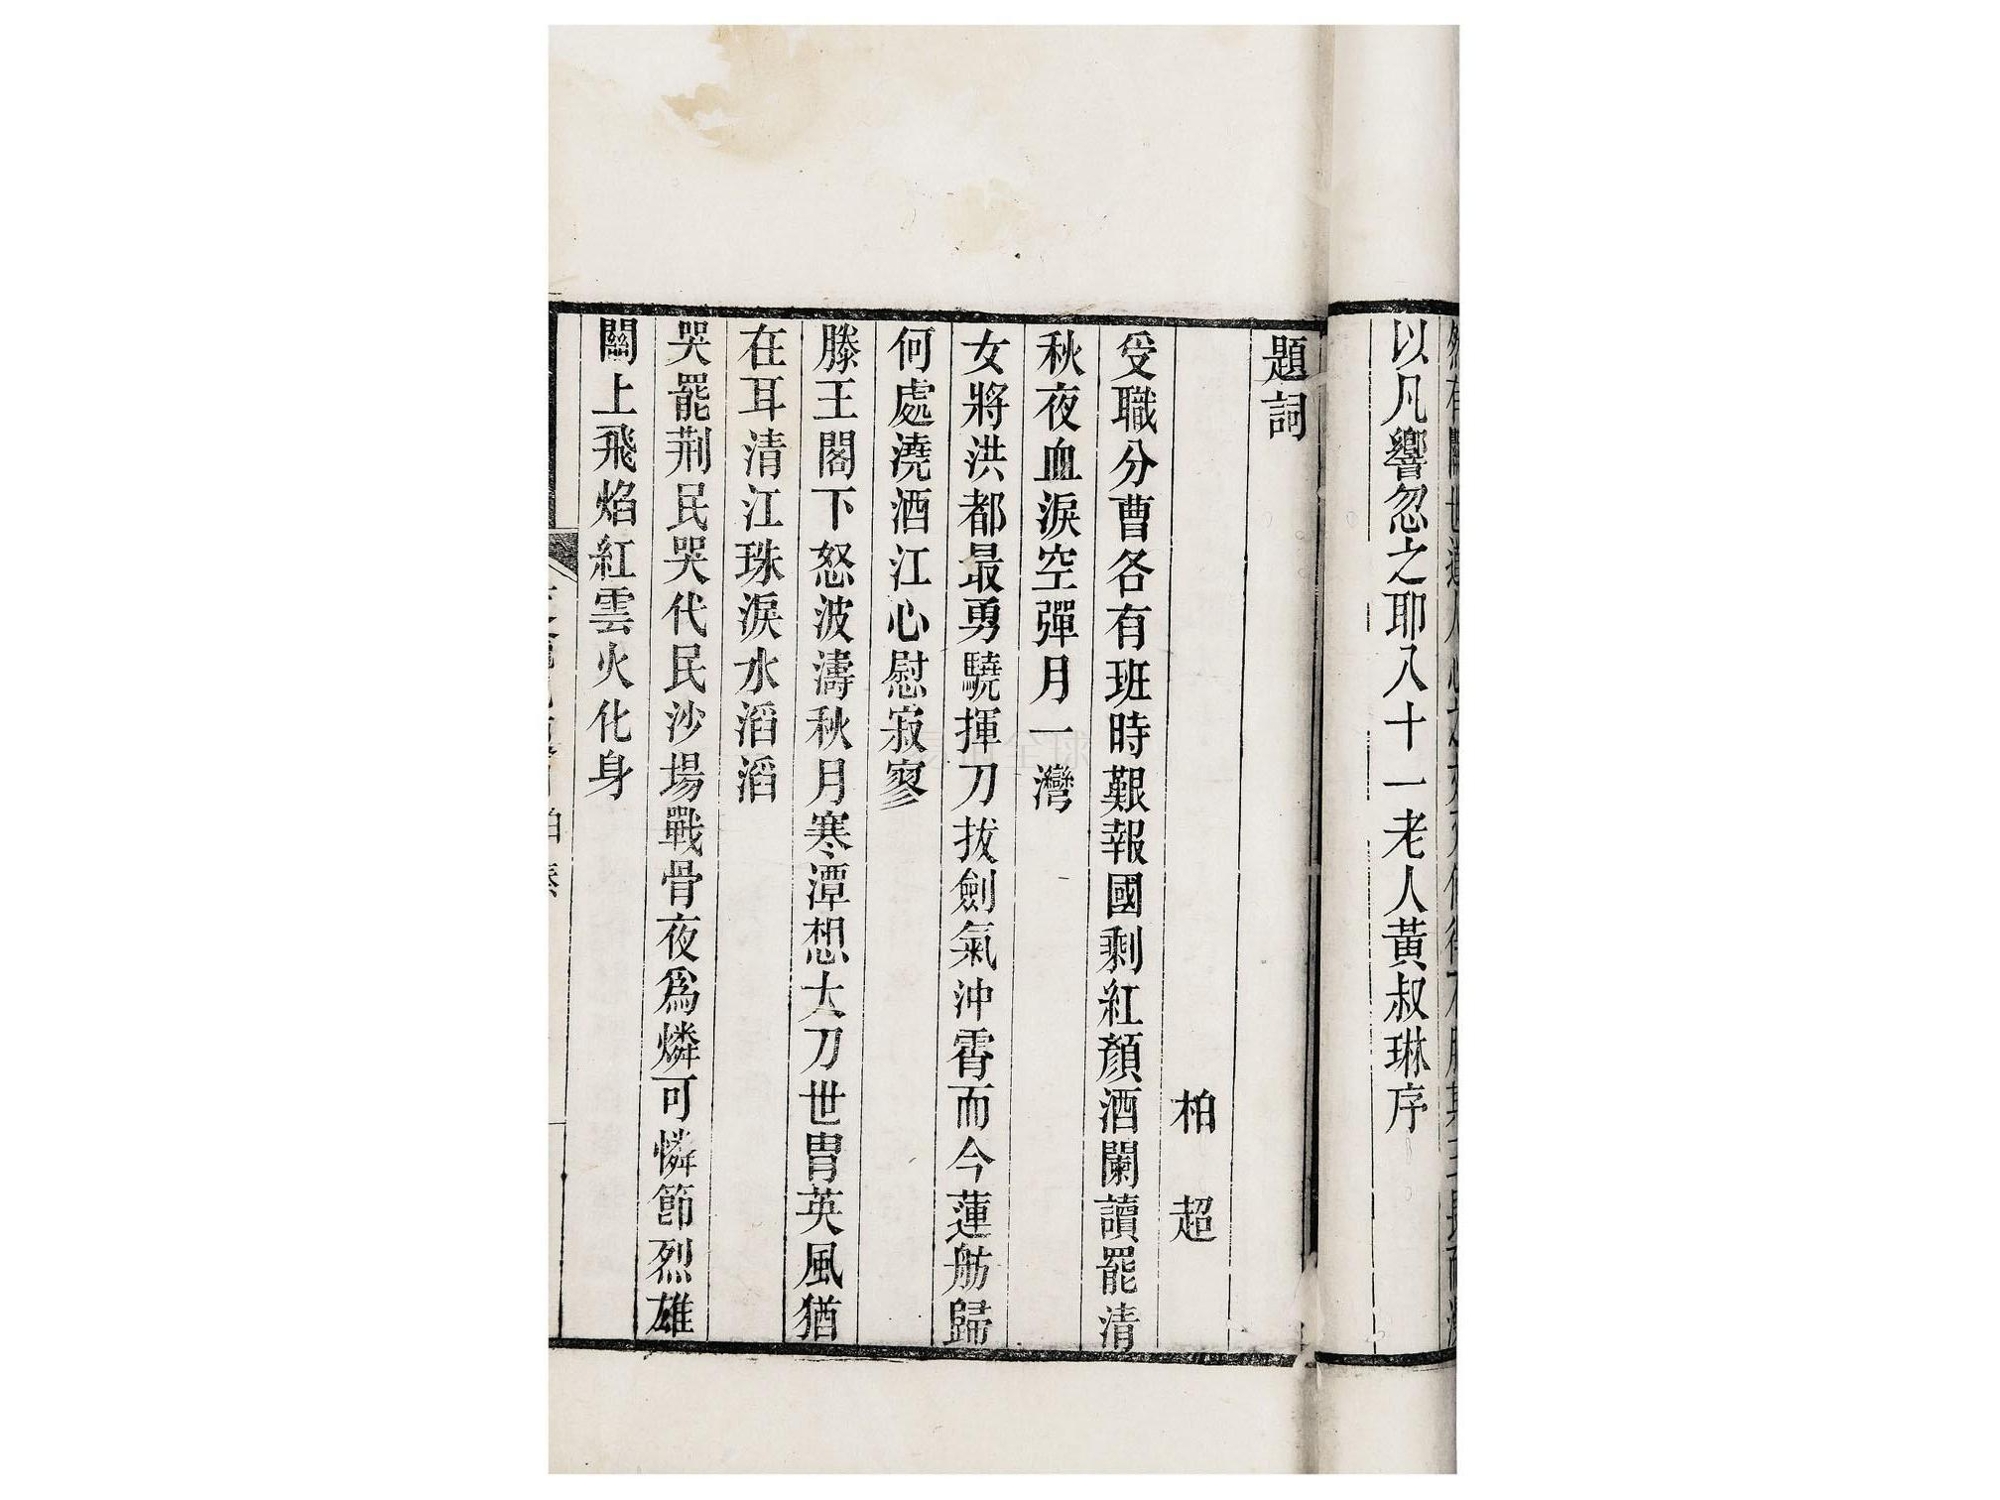 以凡響忽之耶八十一老人黃叔琳序
題詞
柏超
受職分曹各有班時艱報國剩紅顏酒闌讀罷清
秋夜血淚空彈月一灣
女將洪都最勇驍揮刀拔劍氣沖霄而今蓮舫歸
何處澆酒江心慰寂寥
滕王閣下怒波濤秋月寒潭想大刀世胄英風猶
在耳清江珠淚水滔滔
哭罷荆民哭代民沙場戰骨夜為燐可憐節烈雄
關上飛焰紅雲火化身